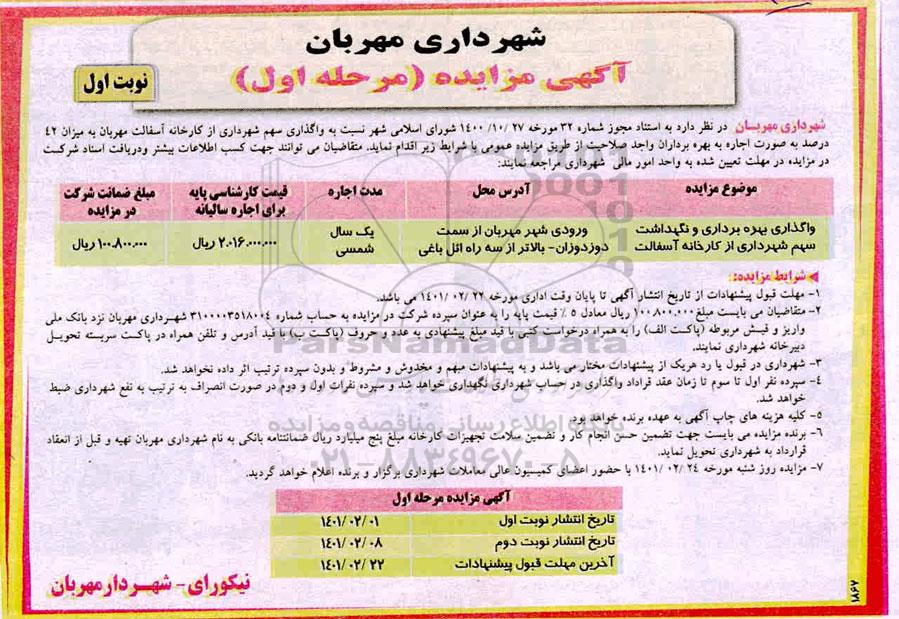 شهرداری مهربان
آگهی مزایده (مرحله اول)
نوبت اول
شهرداری مهربان در نظر دارد به استناد مجوز شماره ۳۲ مورخه ۲۷ /۱۰ /۱۴۰۰ شورای اسلامی شهر نسبت به واگذاری سهم شهرداری از کارخانه آسفالت مهربان به میزان ۴۲
درصد به صورت اجاره به بهره برداران واجد صلاحیت از طریق مزایده عمومی با شرایط زیر اقدام نماید. متقاضیان می توانند جهت کسب اطلاعات بیشتر ودریافت اسناد شرکت
در مزایده در مهلت تعیین شده به واحد امور مالی شهرداری مراجعه نمایند:
موضوع مزایده آدرس محل مدت اجاره قیمت کارشناسی پایه مبلغ ضمانت شرکت
برای اجاره سالیانه در مزایده
واگذاری بهره برداری و نگهداشت ورودی شهر مهربان از سمت یک سال
سهم شهرداری از کارخانه آسفالت دوزدوزان- بالاتر از سه راه ائل باغی شمسی ۲.۰۱۶.۰۰۰.۰۰۰ ریال ۱۰۰.۸۰۰.۰۰۰ ریال
شرایط مزایده:
۱- مهلت قبول پیشنهادات از تاریخ انتشار آگهی تا پایان وقت اداری مورخه ۲۲ /۰۲ /۱۴۰۱ می باشد.
۲- متقاضیان می بایست مبلغ ۱۰۰.۸۰۰.۰۰۰ ریال معادل ۵ ٪ قیمت پایه را به عنوان سپرده شرکت در مزایده به حساب شماره ۳۱۰۰۰۰۳۵۱۸۰۰۴ شهرداری مهربان نزد بانک ملی
واریز و فیش مربوطه (پاکت الف) را به همراه درخواست کتبی با قید مبلغ پیشنهادی به عدد و حروف (پاکت ب) با قید آدرس و تلفن همراه در پاکت سربسته تحویل
دبیرخانه شهرداری نمایند.
۳- شهرداری در قبول یا رد هریک از پیشنهادات مختار می باشد و به پیشنهادات مبهم و مخدوش و مشروط و بدون سپرده ترتیب اثر داده نخواهد شد.
۴- سپرده نفر اول تا سوم تا زمان عقد قراداد واگذاری در حساب شهرداری نگهداری خواهد شد و سپرده نفرات اول و دوم در صورت انصراف به ترتیب به نفع شهرداری ضبط
خواهد شد.
۵- کلیه هزینه های چاپ آگهی به عهده برنده خواهد بود
۶- برنده مزایده می بایست جهت تضمین حسن انجام کار و تضمین سلامت تجهیزات کارخانه مبلغ پنج میلیارد ریال ضمانتنامه بانکی به نام شهرداری مهربان تهیه و قبل از انعقاد
قرارداد به شهرداری تحویل نماید.
۷- مزایده روز شنبه مورخه ۲۴ /۰۲ /۱۴۰۱ با حضور اعضای کمیسیون عالی معاملات شهرداری برگزار و برنده اعلام خواهد گردید.
آگهی مزایده مرحله اول
تاریخ انتشار نوبت اول ۱۴۰۱/۰۲/۰۱
تاریخ انتشار نوبت دوم ۱۴۰۱/۰۲/۰۸
آخرین مهلت قبول پیشنهادات ۱۴۰۱/۰۲/۲۲
نیکورای- شهردارمهربان
۱۸۶۷
ParsNamadData
پایگاه اطلاع رسانی مناقصه و مزایده
۰۲۱-۸۸۳۴۹۶۷۰-۵